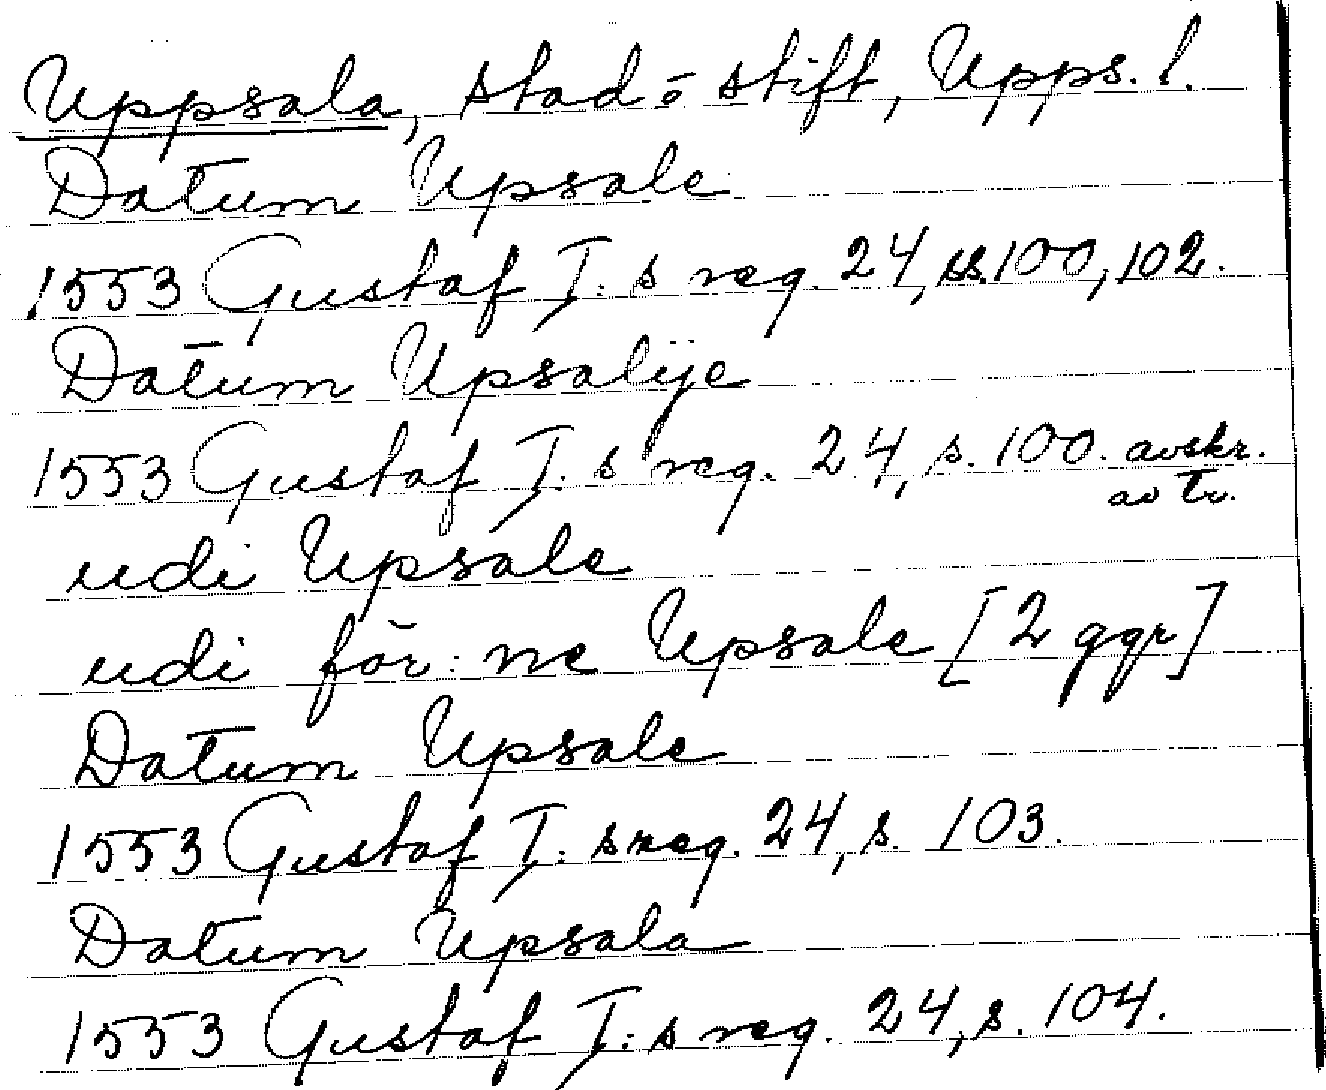 Uppsala, stad o stift, Upps. l.
Datum Upsale
1553 Gustaf I: s reg. 24, ss. 100, 102.
Datum Upsalije
1553 Gustaf I: s reg. 24, s. 100. avskr.
av tr.
udi Upsale
udi för: ne Upsale [2 ggr]
Datum Upsale
1553 Gustaf I: s reg. 24, s. 103.
Datum Upsala
1553 Gustaf I: s reg. 24, s. 104.